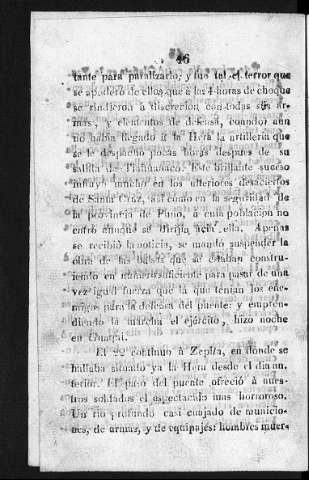 46
tante para paralizarlo, y fue tal el terror que
se apoderó de ellos, que á las 4 horas de choque
se rindieron á discrecion con todas sus ar-
mas, y elementos de defensa, cuando aun
no habia llegado á la Hera la artilleria que
se le despachó pocas horas despues de su
salida de Tiahuanaco. Este brillante suceso
influyó mucho en los ulteriores desaciertos
de Santa Cruz, asi como en la seguridad de
la provincia de Puno, á cuia poblacion no
entró aunque se dirijia acia ella, Apenas
se recibió la noticia, se mandó suspender la
obra de las balsas que se estaban constru-
iendo en número suficiente para pasar de una
vez igual fuerza que la que tenian los ene-
migos para la defensa del puente: y empren-
diendo la marcha el ejército, hizo noche
en
El 22 continuó á Zepita, en donde se
hallaba situado ya la Hera desde el dia an-
terior. El paso del puente ofreció á nues-
tros soldados el espectaculo mas horroroso.
Un rio profundo casi cuajado de municio-
nes, de armas, y de equipajes: hombres muer-